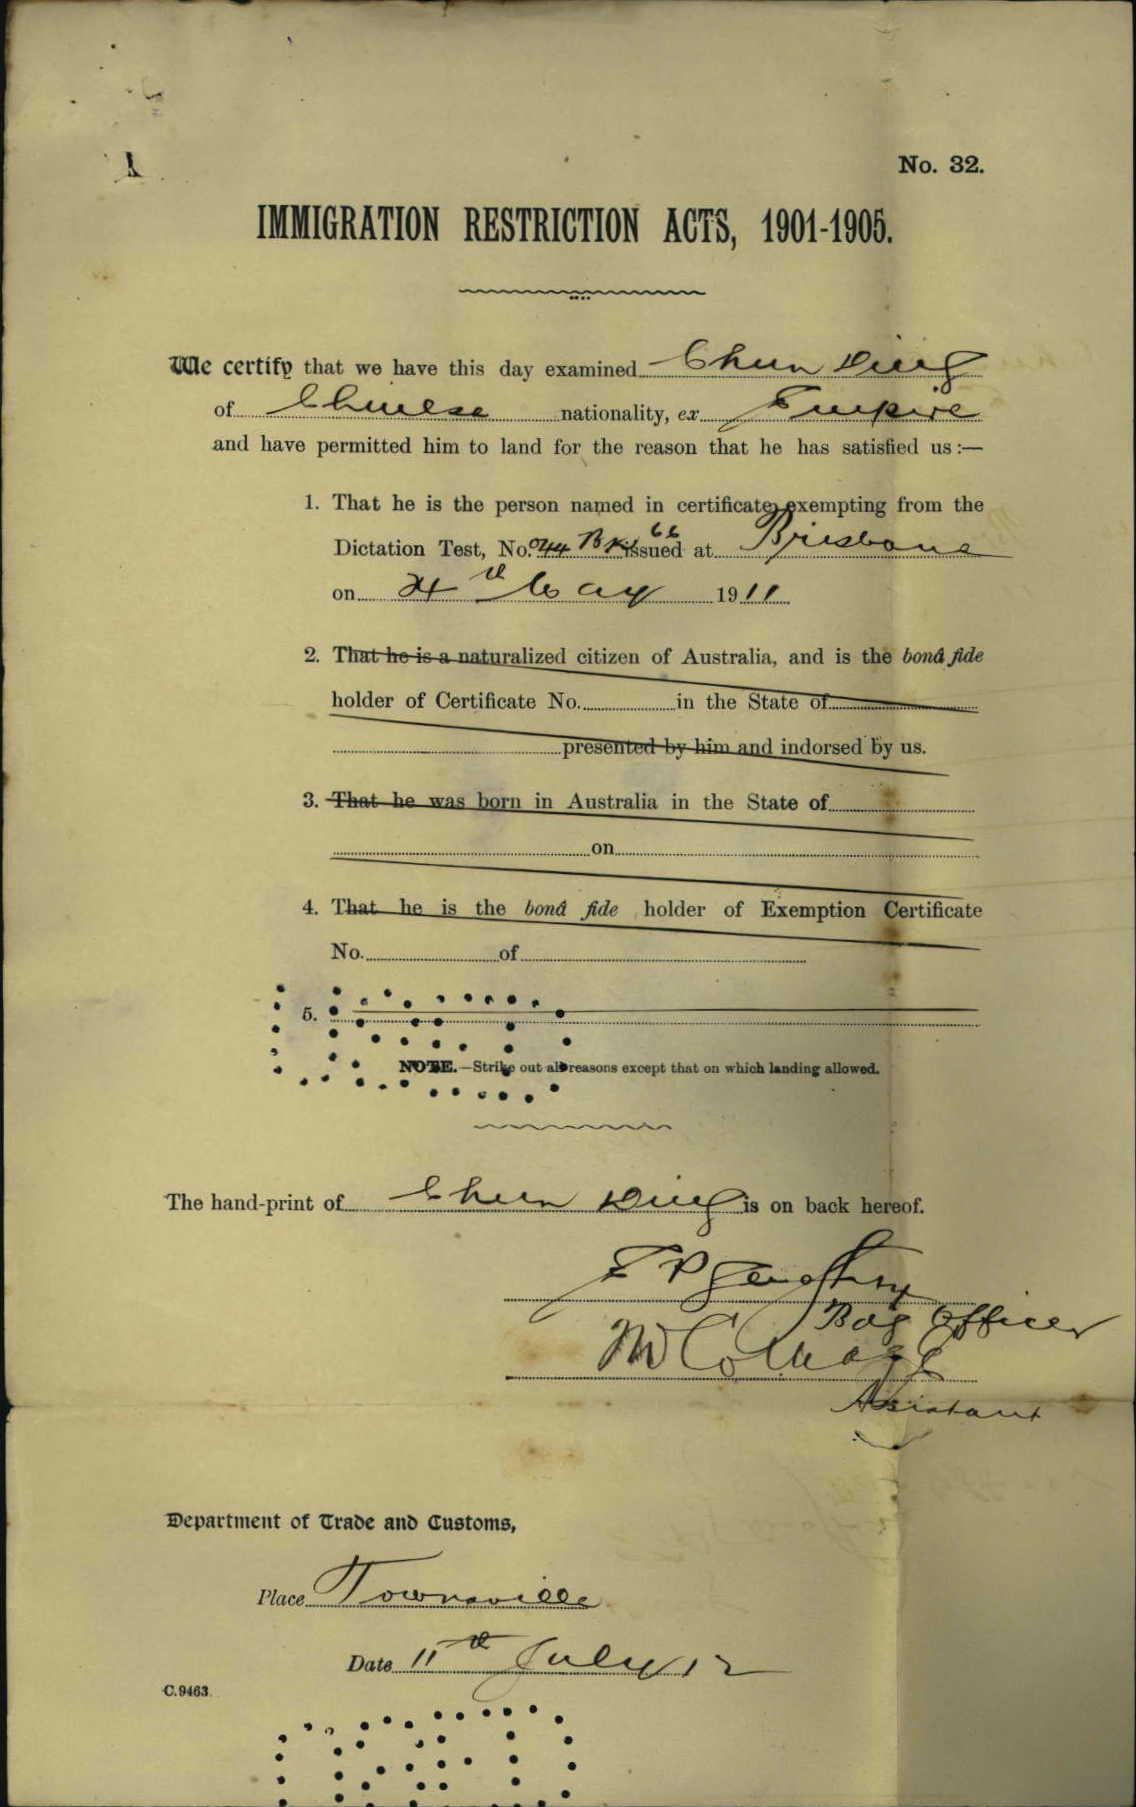 No. 32.
IMMIGRATION RESTRICTION ACTS, 1901-1905.
We certify that we have this day examined Chun Ding
of Chinese nationality, ex Empire
and have permitted him to land for the reason that he has satisfied us:—
1. That he is the person named in certificate exempting from the
Dictation Test, No. 44 Bk 66 issued at Brisbane
on 4th May 1911
2. That he is a naturalized citizen of Australia, and is the bonâ fide
holder of Certificate No. in the State of
presented by him and indorsed by us.
3. That he was born in Australia in the State of
on
4. That he is the bonâ fide holder of Exemption Certificate
No. of
5.
NOTE.—Strike out all reasons except that on which landing allowed.
The hand-print of Chun Ding is on back hereof.
Officer
Assistant
Department of Trade and Customs,
Place Townsville
Date 11th July 12
C.9463.